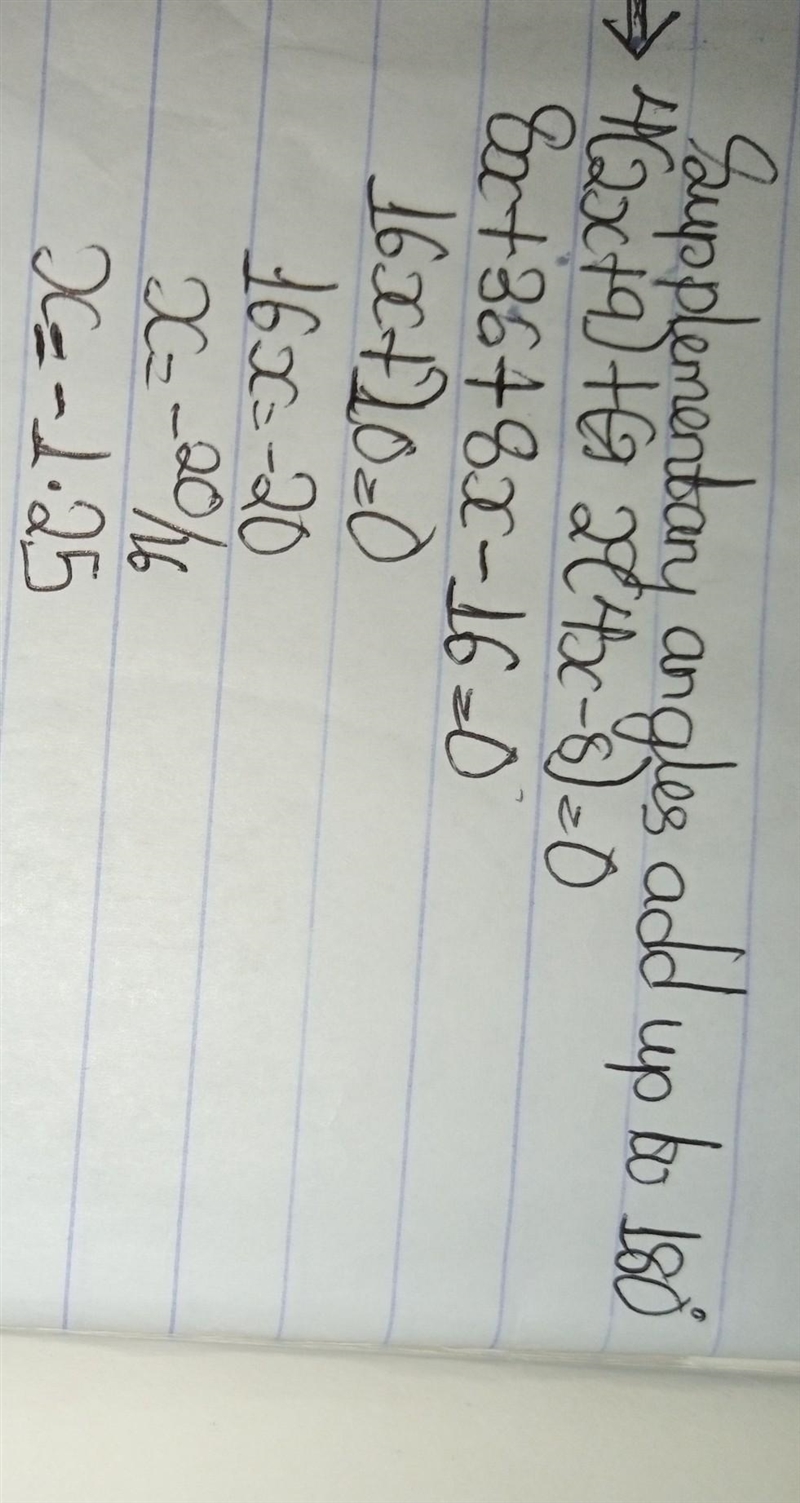 Supplementary angles add up to 180°
→ 4(2x+9)+ 2(4x-8)=0
8x+36+8x-16=0
16x+20=0
16x=-20
x=-20/16
x=-1.25